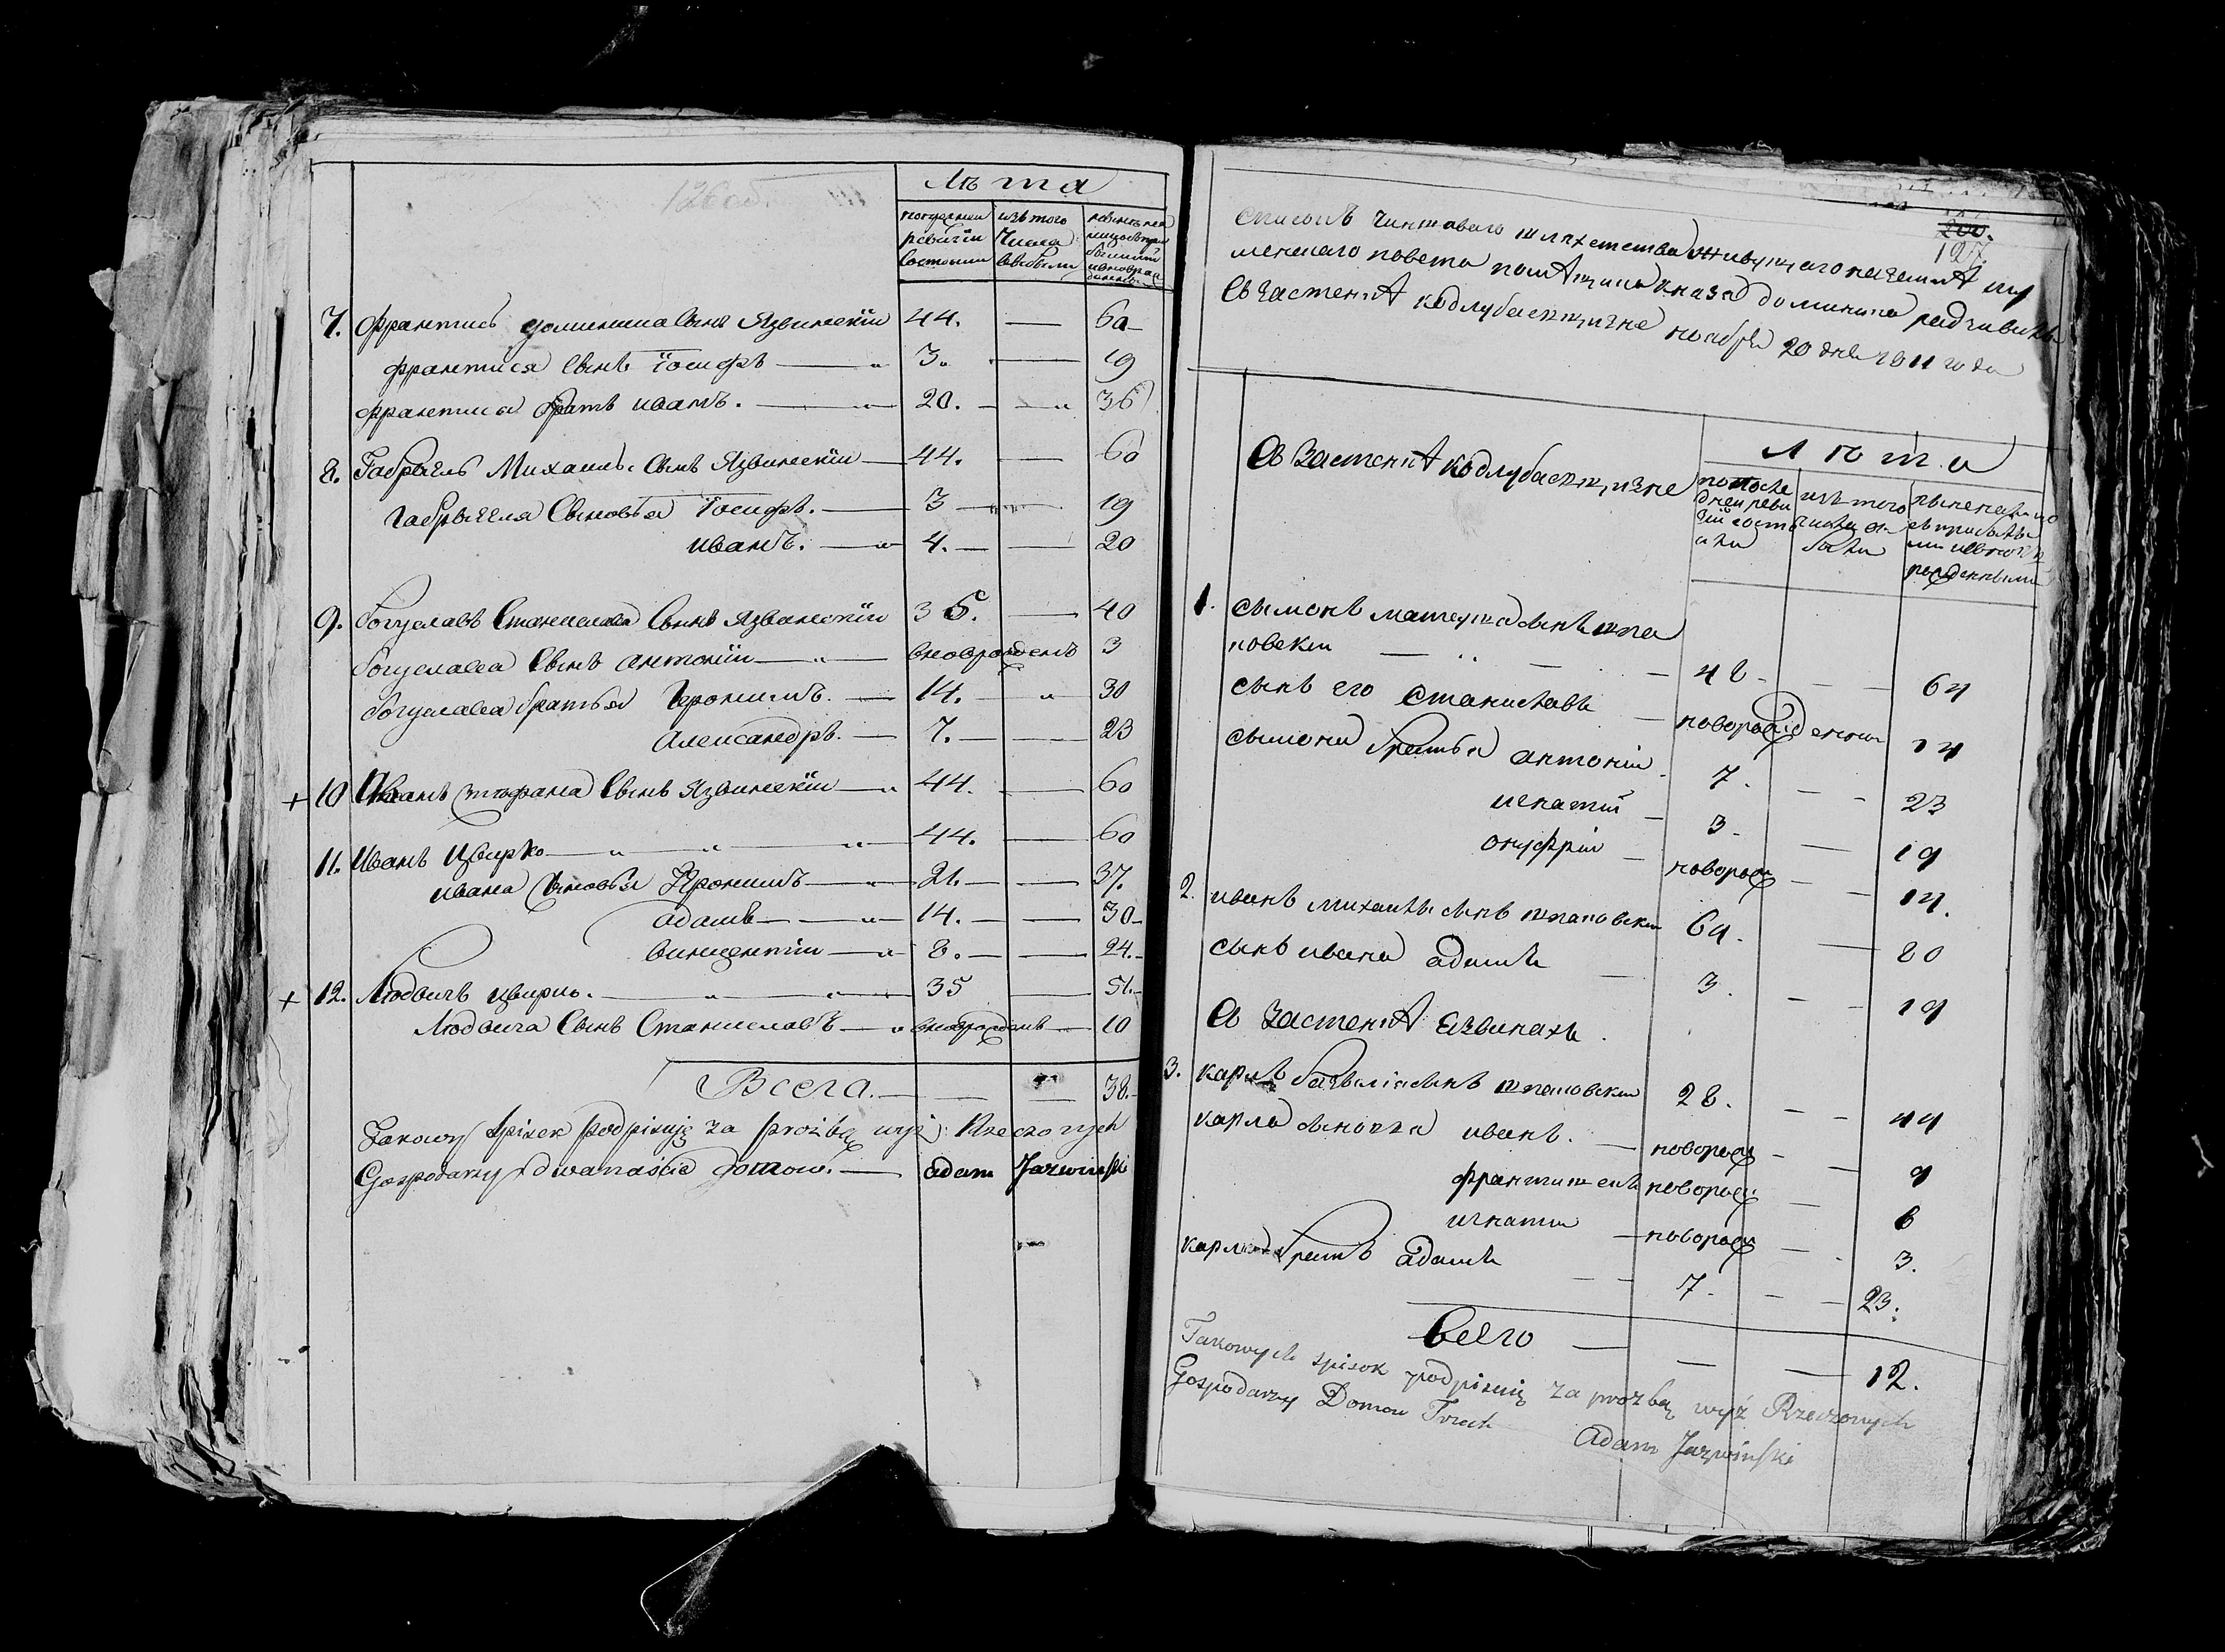 126 об.
Лѣта
по прежней ревизіи состояли
изъ того числа выбыли
7. Францишъ Доминика сынъ Язвинскій 44. — 60
Францися сынъ Іосифъ — 3. — 19
Франциса братъ Иванъ. — 20. — 36
8. Габрыель Михаила сынъ Язвинскій — 44. — 60
Габрыеля сыновья Іосифъ. — 3 — 19
Иванъ. — 4. — 20
9. Богуславъ Станислава сынъ Язвинскій 35. — 40
Богуслава сынъ Антоній — вновророжденъ 3
Богуслава братья Іеронимъ. — 14. — 30
Александръ. — 7. — 23
+ 10 Иванъ Стефана сынъ Язвинскій — 44. — 60
11. Иванъ Цвирко — 44. — 60
Ивана сыновья Яронимъ — 21. — 37.
Адамъ — 14. — 30
Винцентій — 8. — 24.
+ 12. Людвигъ Цвирко. — 35 — 51.
Людвига сынъ Станиславъ — вноврожденъ — 10
Всего. — 38.
Takowy spisek podpisuję za proźbą wyż Rzeczonych
Gospodarzy dwanaście domow. — Adam Jazwinski
200.
127.
Списокъ чиншоваго шляхетства живущаго на земли
повета помѣщика князя Доминика Радзивила
въ застенкѣ Кодлубаещизне ноября 20 дня 1811 года
В застенкѣ Кодлубаещизне
Лѣта
по последней ревизіи состояли
изъ того числа
1. Сымонъ Матеуша сынъ Шпа
новски — 48 — 64
сынъ его Станиславъ — новорожденны 14
Сымона братья Антоній 7. — 23
Игнатій — 3 — 19
Онуфрій — новорож — 14.
2. Иванъ Михаила сынъ Шпановски 64. — 80
сынъ Ивана Адамъ — 3. — 19
В застенкѣ Язвинахъ.
3. Карлъ сынъ Шпановски 28. — 44
Карла сыновья Иванъ. — новорож — 9
Франтишекъ новорож — 6
Игнати — новорож — 3.
Карла братъ Адамъ — 7 — 23.
Всего — 12.
Takowych spisok podpisuię za prozbą wyż Rzeczonych
Gospodarzy Domow Trzech
Adam Jazwinski